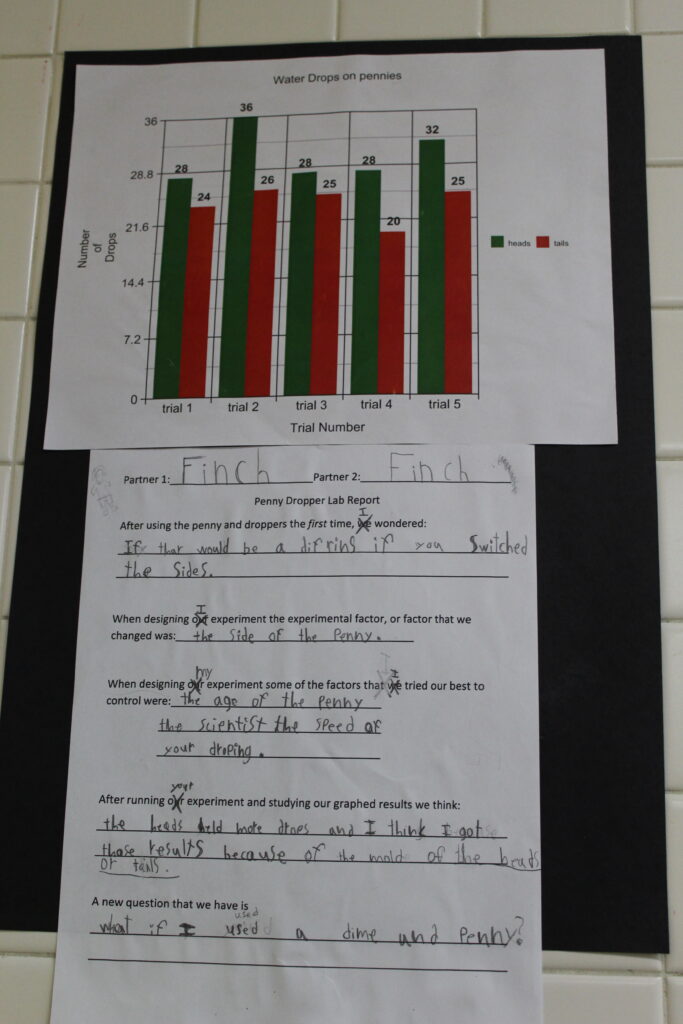 Water Drops on pennies
36
36
28
28.8
24
26
28
25
28
20
32
25
21.6
14.4
7.2
0
Number
of
Drops
heads tails
trial 1 trial 2 trial 3 trial 4 trial 5
Trial Number
Partner 1: Finch Partner 2: Finch
Penny Dropper Lab Report
I
After using the penny and droppers the first time, we wondered:
If that would be a difrins if you Switched
the Sides.
I
When designing our experiment the experimental factor, or factor that we
changed was: the side of the Penny.
my I
When designing our experiment some of the factors that we tried our best to
control were: the age of the penny
the scientist the speed of
your droping.
your
After running our experiment and studying our graphed results we think:
the heads held more drops and I think I got
those results because of the mold of the
or tails.
A new question that we have is
used
what if I used a dime and Penny?